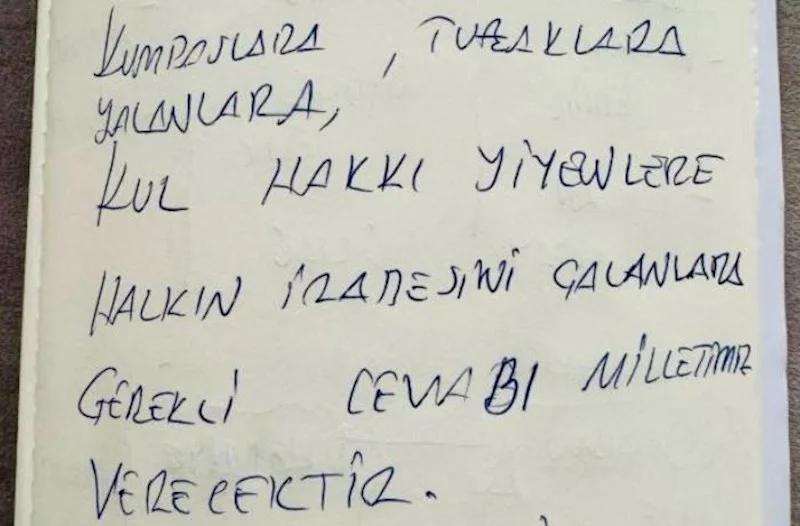 KUMPASLARA, TUZAKLARA
YALANLARA,
KUL HAKKI YİYENLERE
HALKIN İRADESİNİ ÇALANLARA
GEREKLİ CEVABI MİLLETİMİZ
VERECEKTİR.